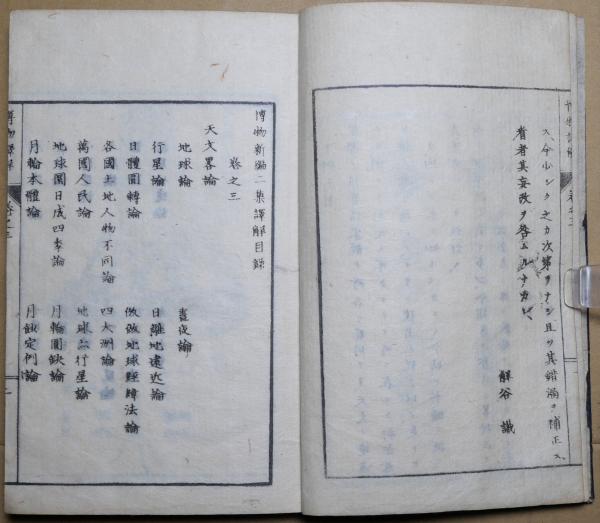 ス、今少シク之カ次第ヲナシ且ツ其錯漏ヲ補正ス、
看者其妄改ヲ咎ムルナカレ、
解谷 識
博物新編二集譯解目録
卷之三
天文畧論
地球論 晝夜論
行星論 日離地遠近論
日體圜轉論 地球經緯法論
各國土地人物不同論 四大洲論
萬國人民論 地球亦行星論
地球圜日成四季論 月輪圓缺論
月輪本體論 月蝕定例論